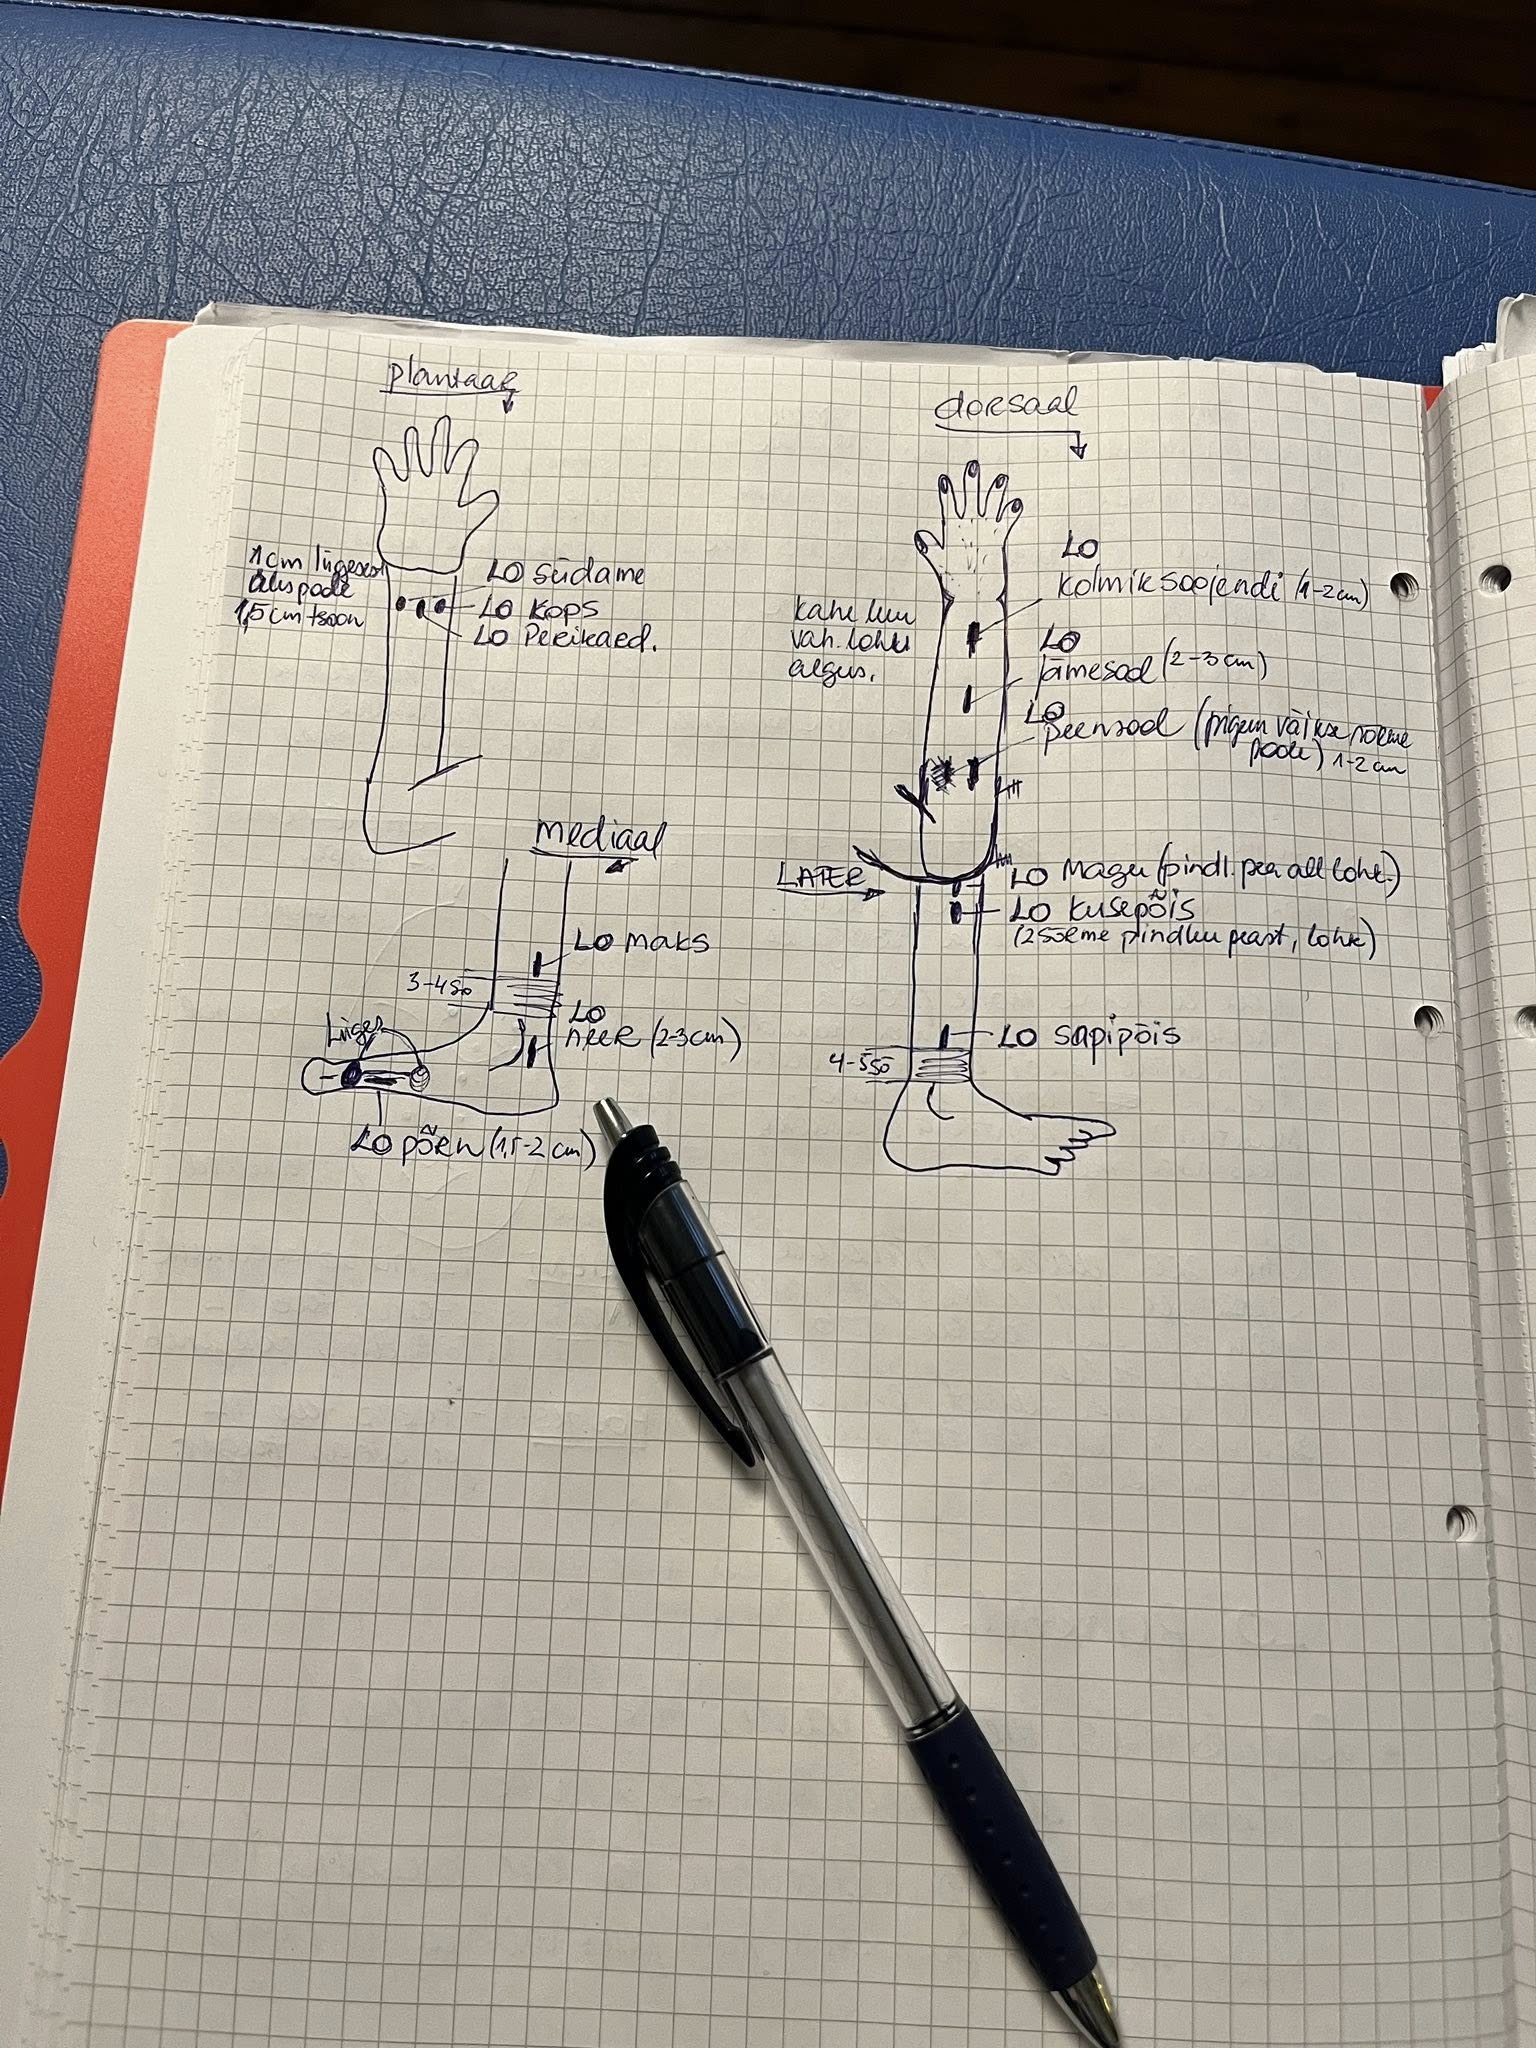 plantaar
1 cm liigesest
allapoole
1,5 cm tsoon
LO südame
LO Kops
LO Perikard.
dorsaal
LO
kolmiksoojendi (1-2 cm)
kahe luu
vah. lohu
algus.
LO
jämesool (2-3 cm)
LO
peensool (pigem väikse sõrme
poole) 1-2 cm
mediaal
LO maks
3-4 sõ
LO
neer (2-3 cm)
Liiges
LO põrn (1,5-2 cm)
LATER
LO Magu (pindl. pea all lohk.)
LO kusepõis
(2 sõrme pindluu peast, lohk)
LO sapipõis
4-5 sõ